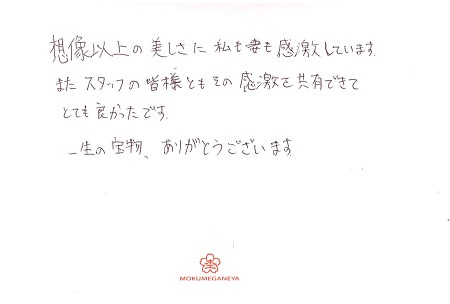 想像以上の美しさに私も妻も感激しています。
またスタッフの皆様ともその感激を共有できて
とても良かったです。
一生の宝物、ありがとうございます
MOKUMEGANEYA